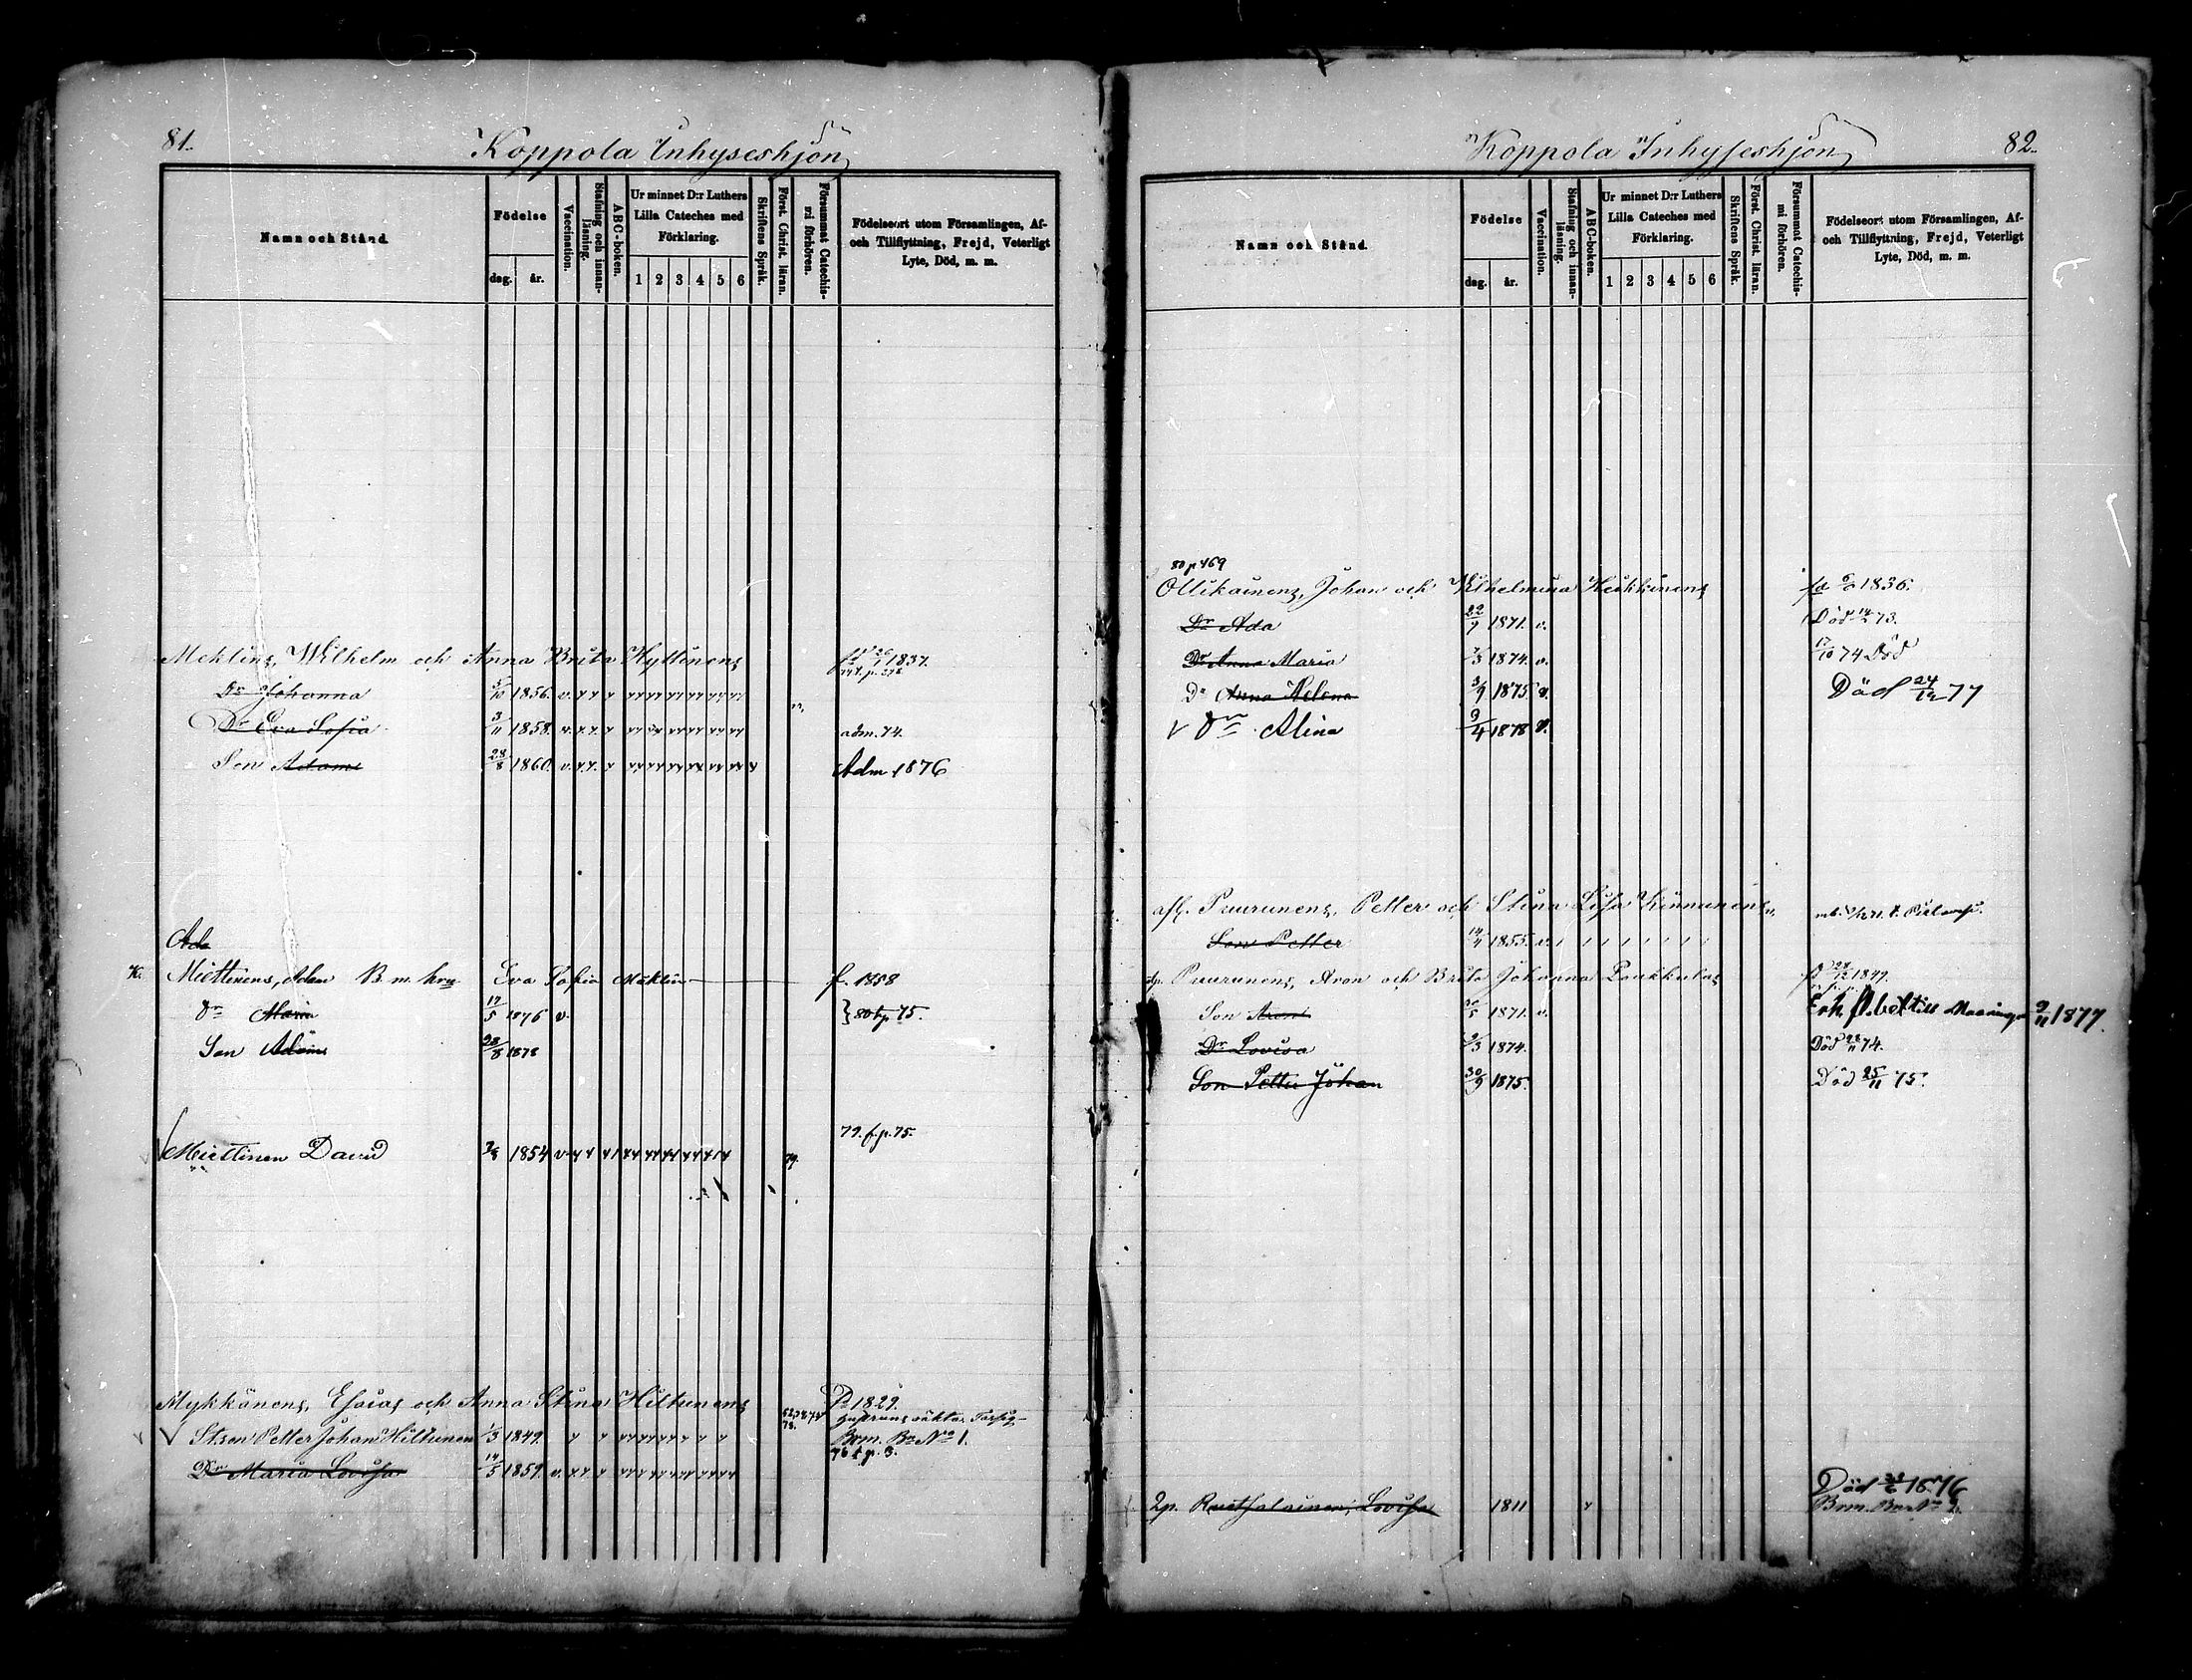 81.
Koppola Inhyseshjon
Namn och Stånd.
Födelse
dag. år.
Vaccination.
Stafning och innanläsning.
ABC-boken.
Ur minnet D:r Luthers Lilla Cateches med Förklaring.
1 2 3 4 5 6
Skriftens Språk.
Först. Christ. läran.
Försummat Catechismi förhören.
Födelseort utom Församlingen, Af- och Tillflyttning, Frejd, Veterligt Lyte, Död, m. m.
Meklins, Wilhelm och Anna Brita Hyttinens 1837.
Dr Johanna 5/10 1856. v.
Dr Eva Sofia 3/11 1858. v. adm. 74.
Son Adam 28/8 1860. v. Adm 1876
Ada
K. Miettinens, Adam B. m. hru Eva Sofia Mäklin f. 1858
Dr Maria 17/5 1876 v. } 80 t.p. 75.
Son Adam 28/8 1878
79. f. p. 75.
Miettinen David 1854 v 79.
Mykkänens, Esaias och Anna Stina Hiltunens 1829.
St.son Petter Johan Hiltunen 1/3 1849. Brm. Bn No 1.
76 t.p. 3.
Dr Maria Lovisa 14/5 1859. v.
82.
Koppola Inhyseshjon
Namn och Stånd.
Födelse
dag. år.
Vaccination.
Stafning och innanläsning.
ABC-boken.
Ur minnet D:r Luthers Lilla Cateches med Förklaring.
1 2 3 4 5 6
Skriftens Språk.
Först. Christ. läran.
Försummat Catechismi förhören.
Födelseort utom Församlingen, Af- och Tillflyttning, Frejd, Veterligt Lyte, Död, m. m.
80 p 469
Ollikainens, Johan och Wilhelmina Heikkinens 1836.
Dr Ada 22/9 1871. v. Död 73.
Dr Anna Maria 7/3 1874. v. 17/10 74 Död
Dr Anna Helena 3/9 1875 v. Död 24/12 77
V Dr Alina 9/4 1878 v.
afl. Puurunens, Petter och Stina Lisa Kinnunens
Son Petter 1855. v.
Puurunens, Aron och Brita Johanna Laukkalas 28/12 1849.
Son Aron 1871. v. Erh. fl.bet till Maaninga 9/11 1877.
Dr Lovisa 1874. Död 28/11 74.
Son Petter Johan 30/9 1875. Död 25/11 75.
Död 1876
2p. Ruotsalainen, Lovisa 1811 Brm. Bn No 2.